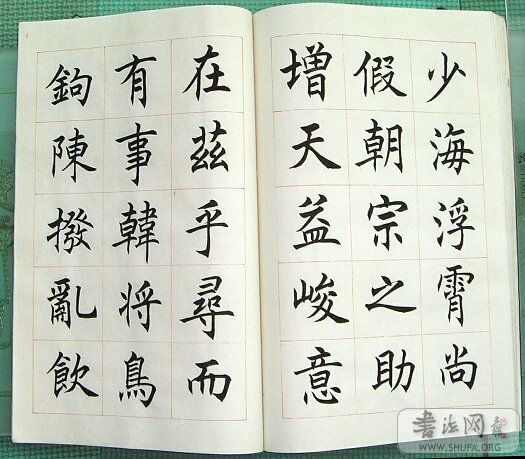 少海浮霄尚
假朝宗之助
增天益峻意
在茲乎尋而
有事韓将鳥
鉤陳撥亂飲
书法网
WWW.SHUFA.ORG